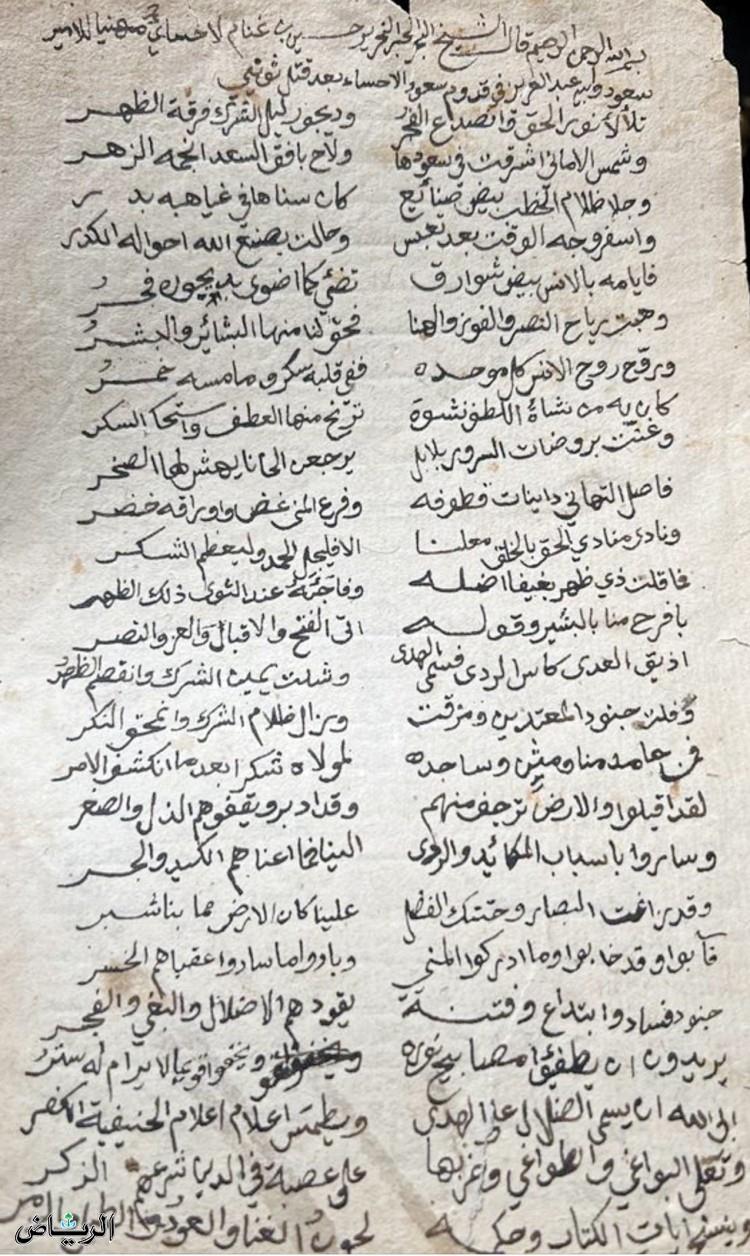 بسم الله الرحمن الرحيم قال الشيخ الحبر النحرير حسين بن غنام الاحسائي مهنيا للامير
سعود وابيه عبد العزيز في قدوم سعود الاحساء بعد قتل ثويني
تلألأ نور الحق وانصدع الفجر وديجور ليل الشرك مزقه الظهر
وشمس الاماني اشرقت في سعودها ولاح بافق السعد انجمه الزهر
وجلا ظلام الخطب بيض صنائع كان سناها في غياهبه بدر
واسفر وجه الوقت بعد تعبس وحالت بصنع الله احواله الكدر
فايامه بالانس بيض شوارق تضئي كما اضوى بديجوره فجر
وهبت رياح النصر والفوز والهنا فحق لنا منها البشائر والبشر
وروح روح الانس كل موحد ففي قلبه سكر وما مسه خمر
كان به من نشاة اللطف نشوة ترنح منها العطف واستحكا السكر
وغنت بروضات السرور بلابل يرجعن الحانا يهش لها الصخر
فاصل التهاني دانيات قطوفه وفرع المنى غض واوراقه خضر
ونادى منادي الحق بالخلق معلنا الا فليجل الحمد وليعظم الشكر
فما قلت ذي ظهر بغيفا اضله وفاجئته عند الثوى ذلك الظهر
يا فرح منا بالبشير وقوله اتى الفتح والاقبال والعز والنصر
اذيق العدى كاس الردى فسمى الهدى وشلت يمين الشرك وانقصم الظهر
وفلت جنود المعتدين ومزقت وزال ظلام الشرك وانمحق النكر
فمن حامد منا ومثن وساجد لمولاه شكرا بعدما انكشف الامر
لقد اقبلوا والارض ترجف منهم وقد ادبرو يقفوهم الذل والصغر
وساروا باسباب المكائد والردى الينا فما اغناهم الكيد والجر
وقد زاغت الابصار وحنتك الفضل علينا كان الارض مما بنا شبر
فآبوا وقد خابوا وما ادركوا المنى وبادوا ما سادوا عقباهم الخسر
جنود فساد وابتداع وفتنة يقودهم الاضلال والبغي والفجر
يريدون ان يطفئوا مصابيح نوره ويخفوا قويما لا يرام له ستر
ابى الله ان يسمى الضلال على الهدى ويطمس اعلام اعلام الحنيفية الكفر
وتعلى البواغي والطواغي وغربها على عصبة في الدين شرعهم الذكر
وينسخ ايات الكتاب وحكمه لحون الغنا والعود والطبل والزمر
الرياض